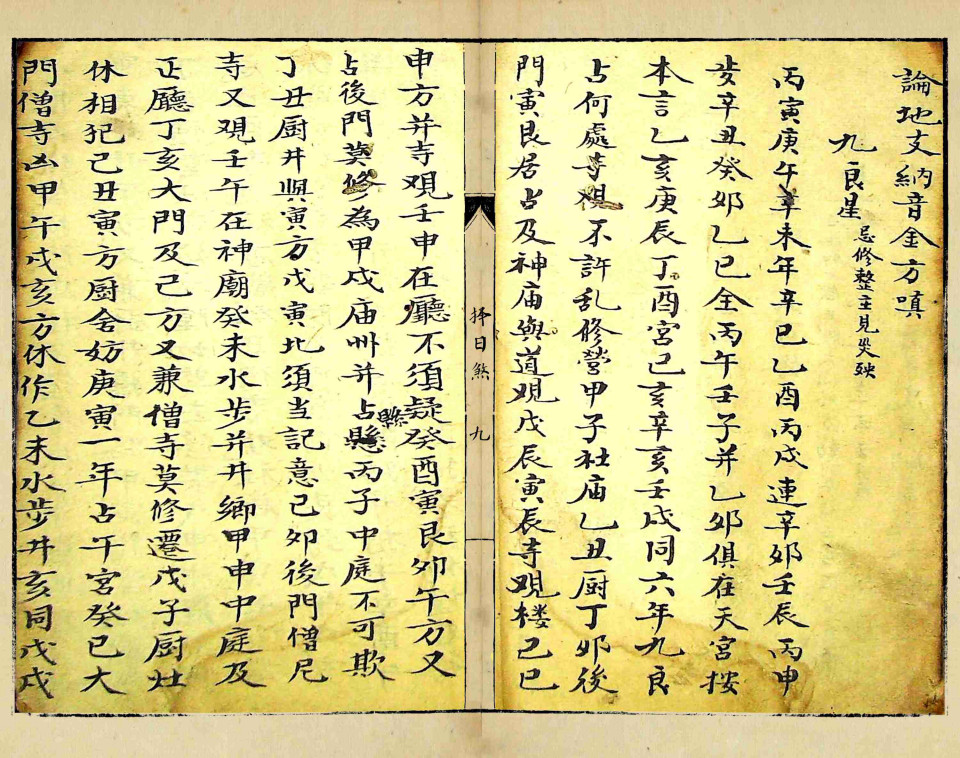 論地支納音金方嗔
九良星 忌修整主見災殃
丙寅庚午辛未年辛巳乙酉丙戌連辛卯壬辰丙申
歩辛丑癸卯乙巳全丙午壬子并乙卯俱在天宮按
本言乙亥庚辰丁酉宮己亥辛亥壬戌同六年九良
占何處寺観不許乱修營甲子社庙乙丑厨丁卯後
門寅艮居占及神庙與道观戊辰寅辰寺观楼己巳
擇日煞 九
申方并寺观壬申在廳不須疑癸酉寅艮卯午方又
占後門莫修為甲戌庙州并占懸縣丙子中庭不可欺
丁丑厨井與寅方戊寅北須当記意己卯後門僧尼
寺又观壬午在神廟癸未水步并井鄉甲申中庭及
正廳丁亥大門及己方又兼僧寺莫修遷戊子厨灶
休相犯己丑寅方厨舍妨庚寅一年占午宮癸巳大
門僧寺凶甲午戌亥方休作乙未水步井亥同戊戌